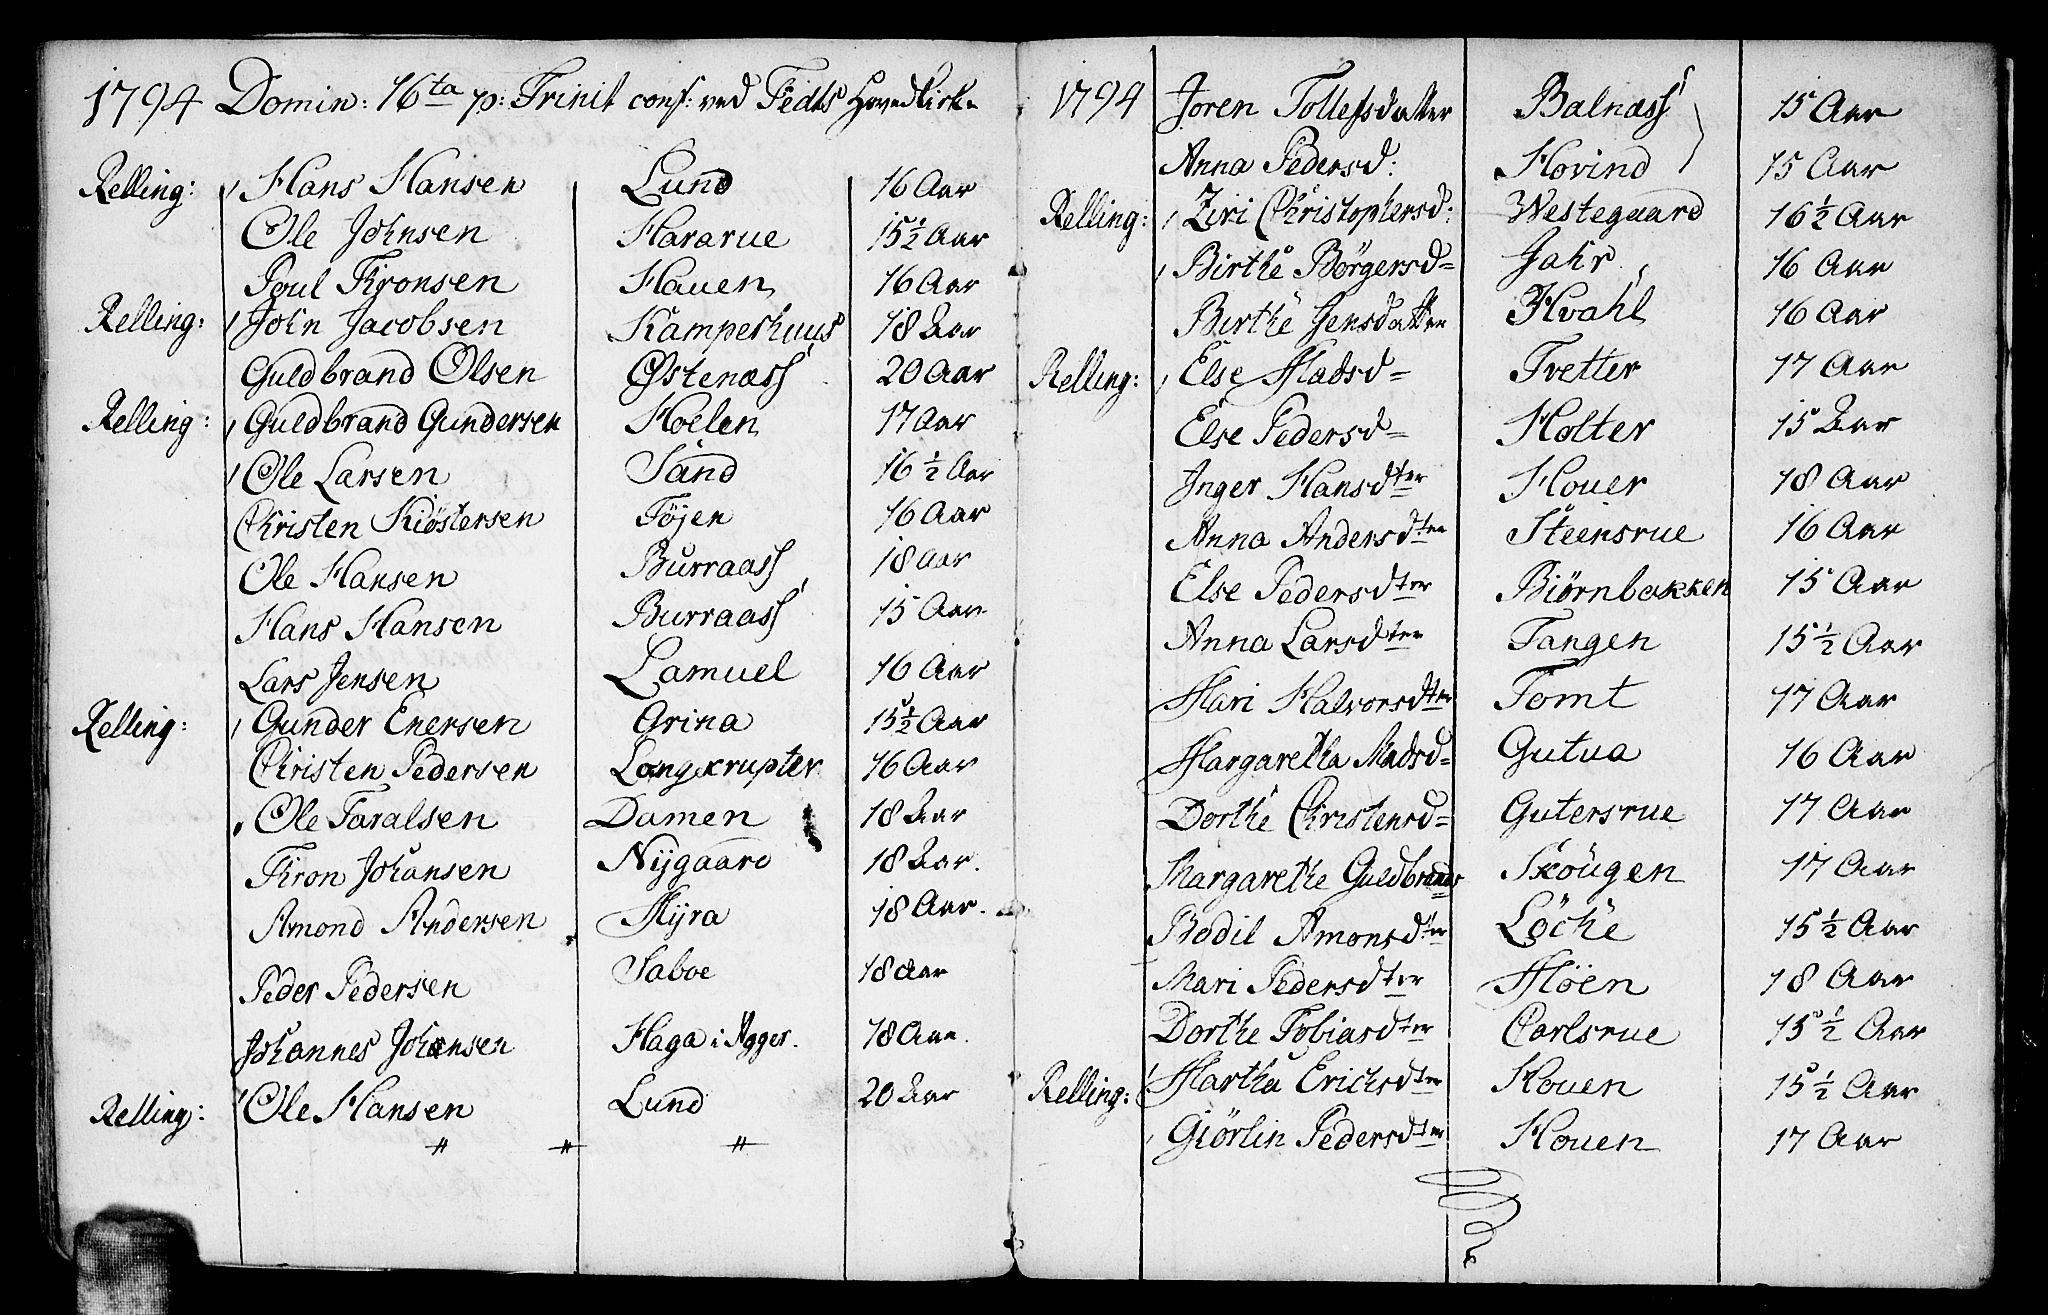 1794 Domin: 16ta p: Trinit conf: ved Fedts Hovedkirke
Relling: Hans Hansen Lund 16 Aar
Ole Johnsen Hararue 15½ Aar
Poul Thronsen Hauen 16 Aar
Relling: John Jacobsen Kamperhuus 18 Aar
Guldbrand Olsen Østenæss 20 Aar
Relling: Guldbrand Gundersen Hoelen 17 Aar
Ole Larsen Sand 16½ Aar
Christen Kiøstersen Føjen 16 Aar
Ole Hansen Burraass 18 Aar
Hans Hansen Burraass 15 Aar
Lars Jensen Lamuel 16 Aar
Relling: Gunder Enersen Grina 15½ Aar
Christen Pedersen Langkrupter 16 Aar
Ole Taralsen Damen 18 Aar
Thron Johansen Nijgaard 18 Aar.
Amond Andersen Mijra 18 Aar.
Peder Pedersen Saboe 18 Aar
Johannes Johansen Haga i Agger. 18 Aar.
Relling: Ole Hansen Lund 20 Aar
" " "
1794 Joren Tollefsdatter Balnæss 15 Aar
Anna Pedersd: Hovind 15 Aar
Relling: Ziri Christophersd: Westegaard 16½ Aar
Birthe Børgersd= Jahr 16 Aar
Birthe Jensdatter Hvahl 16 Aar
Relling: Else Madsd= Tvetter 17 Aar
Else Pedersd= Holter 15 Aar
Inger Hansdter Houer 18 Aar
Anna Andersdter Steensrue 16 Aar
Else Pedersdter Biørnbakken 15 Aar
Anna Larsdter Tangen 15½ Aar
Mari Halvorsdter Tomt 17 Aar
Margaretha Madsd= Gutua 16 Aar
Dorthe Christensd= Gutersrue 17 Aar
Margarethe Guldbrands Skougen 17 Aar
Bodil Amonsdter Løcke 15½ Aar
Mari Pedersdter Moen 18 Aar
Dorthe Tobiasdter Carlsrue 15½ Aar
Relling: Martha Erichsdter Houen 15½ Aar
Giørlin Pedersdter Houen 17 Aar